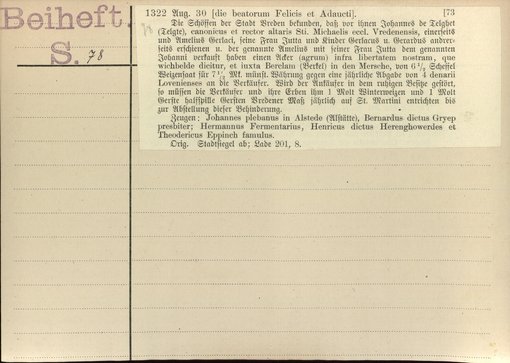 Beiheft.
S. 78
1322 Aug. 30 [die beatorum Felicis et Adaucti]. [73
Die Schöffen der Stadt Vreden bekunden, daß vor ihnen Johannes de Telghet
(Telgte), canonicus et rector altaris Sti. Michaelis eccl. Vredenensis, einerseits
und Amelius Gerlaci, seine Frau Jutta und Kinder Gerlacus u. Gerardus andrer-
seits erschienen u. der genannte Amelius mit seiner Frau Jutta dem genannten
Johanni verkauft haben einen Acker (agrum) infra libertatem nostram, que
wichbelde dicitur, et iuxta Berclam (Berkel) in den Mersche, von 6 1/2 Scheffel
Weizensaat für 7 1/2 Mk. münst. Währung gegen eine jährliche Abgabe von 4 denarii
Lovenienses an die Verkäufer. Wird der Ankäufer in dem ruhigen Besitze gestört,
so müssen die Verkäufer und ihre Erben ihm 1 Malt Winterweizen und 1 Malt
Gerste halfspille Gersten Vredener Maß jährlich auf St. Martini entrichten bis
zur Abstellung dieser Behinderung.
Zeugen: Johannes plebanus in Alstede (Alstätte), Bernardus dictus Gryep
presbiter; Hermannus Fermentarius, Henricus dictus Herenghowerdes et
Theodericus Eppinch famulus.
Orig. Stadtsiegel ab; Lade 201, 8.